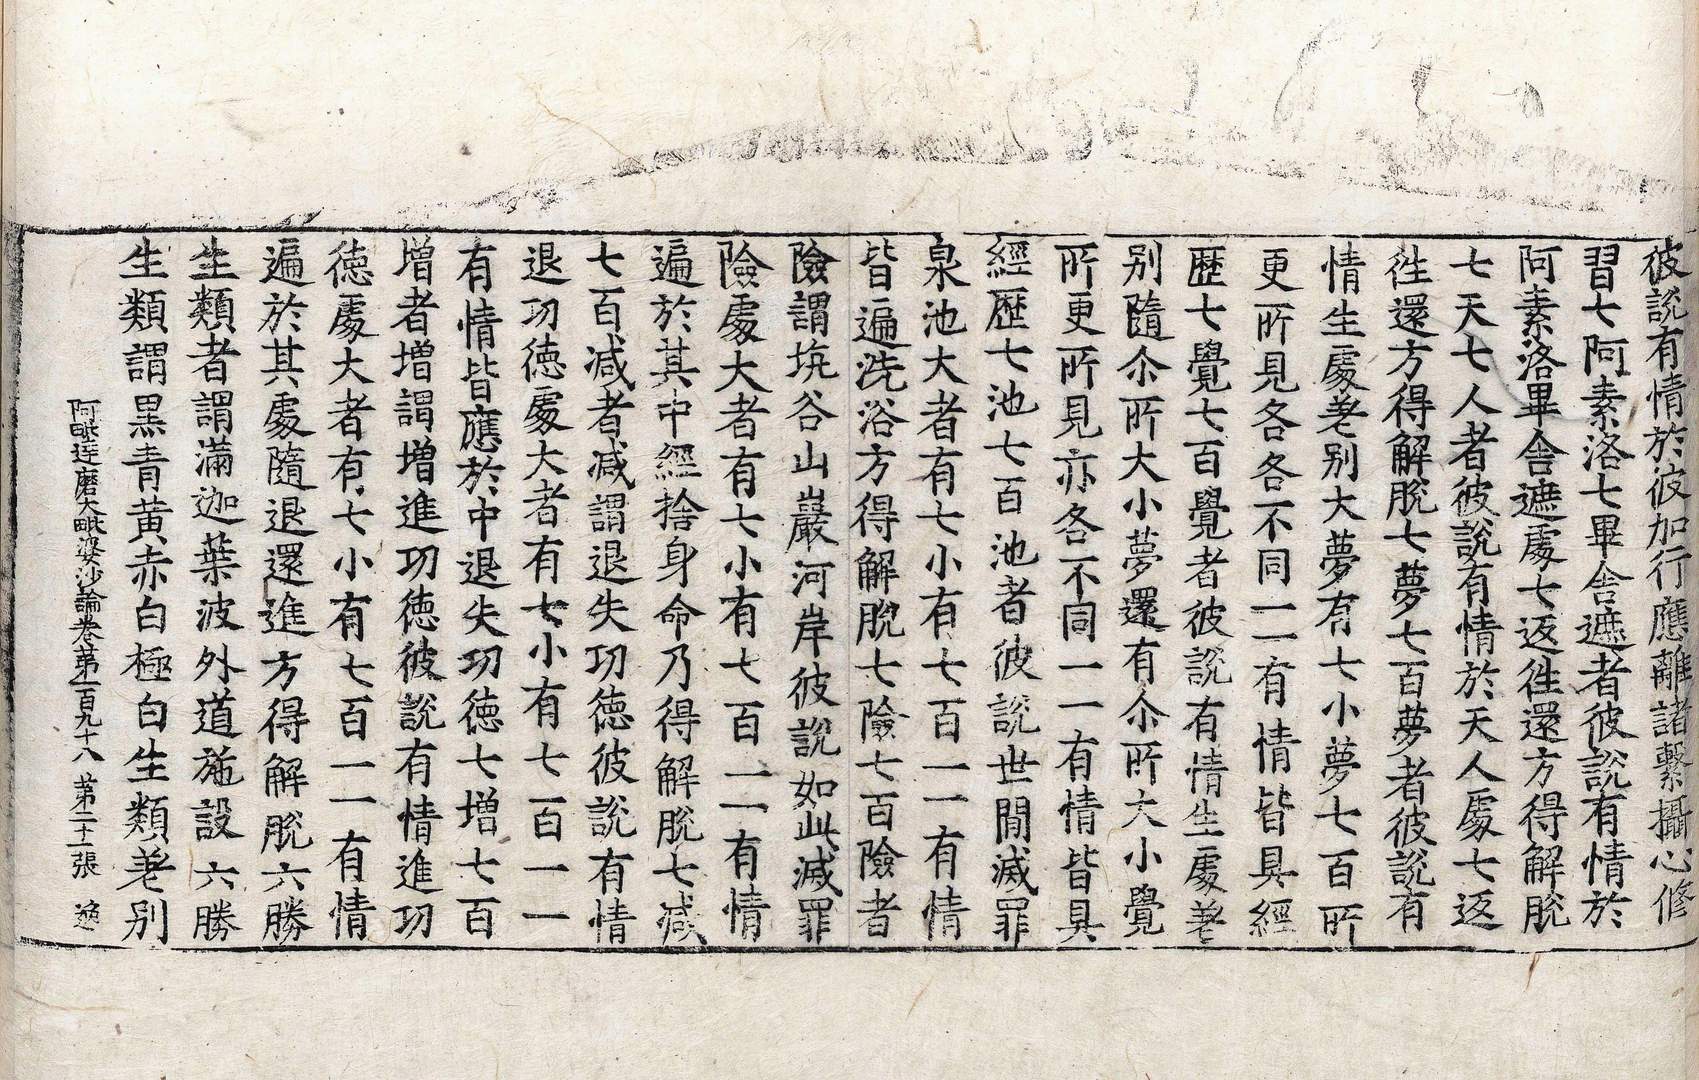 彼說有情於彼加行應離諸繫攝心修
習七阿素洛七畢舍遮者彼說有情於
阿素洛畢舍遮處七返徃還方得解脫
七天七人者彼說有情於天人處七返
徃還方得解脫七夢七百夢者彼說有
情生處差别大夢有七小夢七百所
更所見各各不同一一有情皆具經
歷七覺七百覺者彼說有情生處差
别隨尒所大小夢還有尒所大小覺
所更所見亦各不同一一有情皆具
經歷七池七百池者彼說世間滅罪
泉池大者有七小有七百一一有情
皆遍洗浴方得解脫七險七百險者
險謂坑谷山巖河岸彼說如此滅罪
險處大者有七小有七百一一有情
遍於其中經捨身命乃得解脫七減
七百減者減謂退失功德彼說有情
退功德處大者有七小有七百一一
有情皆應於中退失功德七增七百
增者增謂增進功德彼說有情進功
德處大者有七小有七百一一有情
遍於其處隨退還進方得解脫六勝
生類者謂滿迦葉波外道施設六勝
生類謂黑青黄赤白極白生類差别
阿毗達磨大毗婆沙論卷第一百九十八 第二十二張 逸